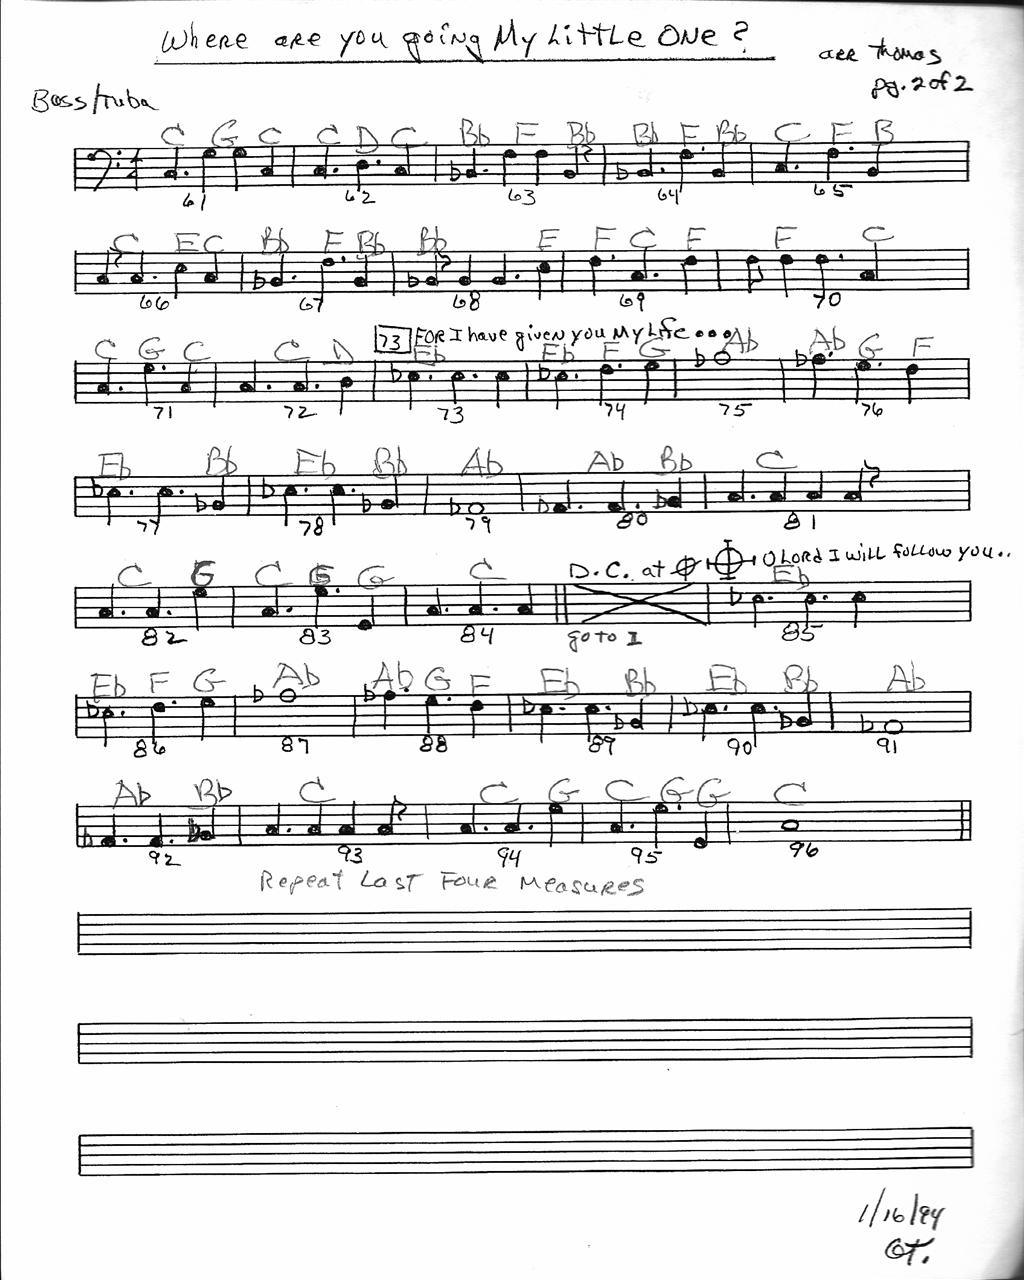 Where are you going My Little One?
arr Thomas
pg. 2 of 2
Bass/tuba
C G C C D C Bb F Bb Bb F Bb C F B
61 62 63 64 65
C E C Bb F Bb Bb E F C F F C
66 67 68 69 70
73 FOR I have given you My Life...
C G C C D Eb Eb F G Ab Ab G F
71 72 73 74 75 76
Eb Bb Eb Bb Ab Ab Bb C
77 78 79 80 81
D.C. at O Lord I will follow you..
C G C G C Eb
82 83 84 go to I 85
Eb F G Ab Ab G F Eb Bb Eb Bb Ab
86 87 88 89 90 91
Ab Bb C C G C G G C
92 93 94 95 96
Repeat Last Four Measures
1/16/94
OT.